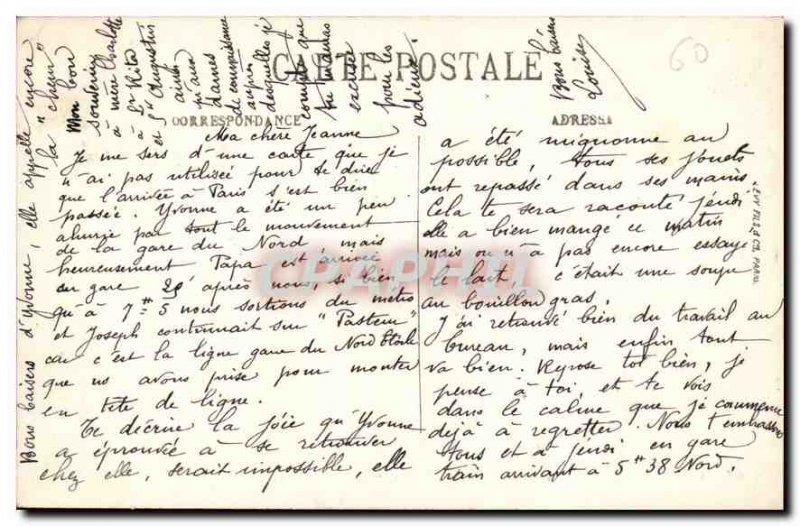 CARTE POSTALE
CORRESPONDANCE
ADRESSE
Ma chère Jeanne
Je me sers d'une carte que je
n'ai pas utilisée pour te dire
que l'arrivée à Paris s'est bien
passée. Yvonne a été un peu
ahurie par tout le mouvement
de la gare du Nord mais
heureusement Papa est arrivé
en gare 20' après nous, si bien
qu'à 7 H 5 nous sortions du métro
et Joseph continuait sur "Pasteur"
car c'est la ligne gare du Nord Etoile
que ns avons prise pour monter
en tête de ligne.
Te décrire la joie qu'Yvonne
a éprouvée à se retrouver
chez elle, serait impossible, elle
a été mignonne au
possible, tous ses jouets
ont repassé dans ses mains.
Cela te sera raconté jeudi
elle a bien mangé ce matin
mais on n'a pas encore essayé
le lait, c'était une soupe
au bouillon gras.
J'ai retrouvé bien du travail au
bureau, mais enfin tout
va bien. Repose toi bien, je
pense à toi et te vois
dans le calme que je commence
déjà à regretter. Nous t'embrassons
tous et à jeudi en gare
train arrivant à 5 H 38 Nord.
Bons baisers d'Yvonne, elle appelle encore
la "
Mon bon
souvenir
à mère Charlotte
à Sr Rita
et St Augustin
ainsi
qu'aux
dames
de connaissance
auprès
desquelles je
compte que
tu m'auras
excusée
pour les
adieux.
Bons baisers
Louise
60
LEVY FILS & Cie PARIS
CPAPHIL